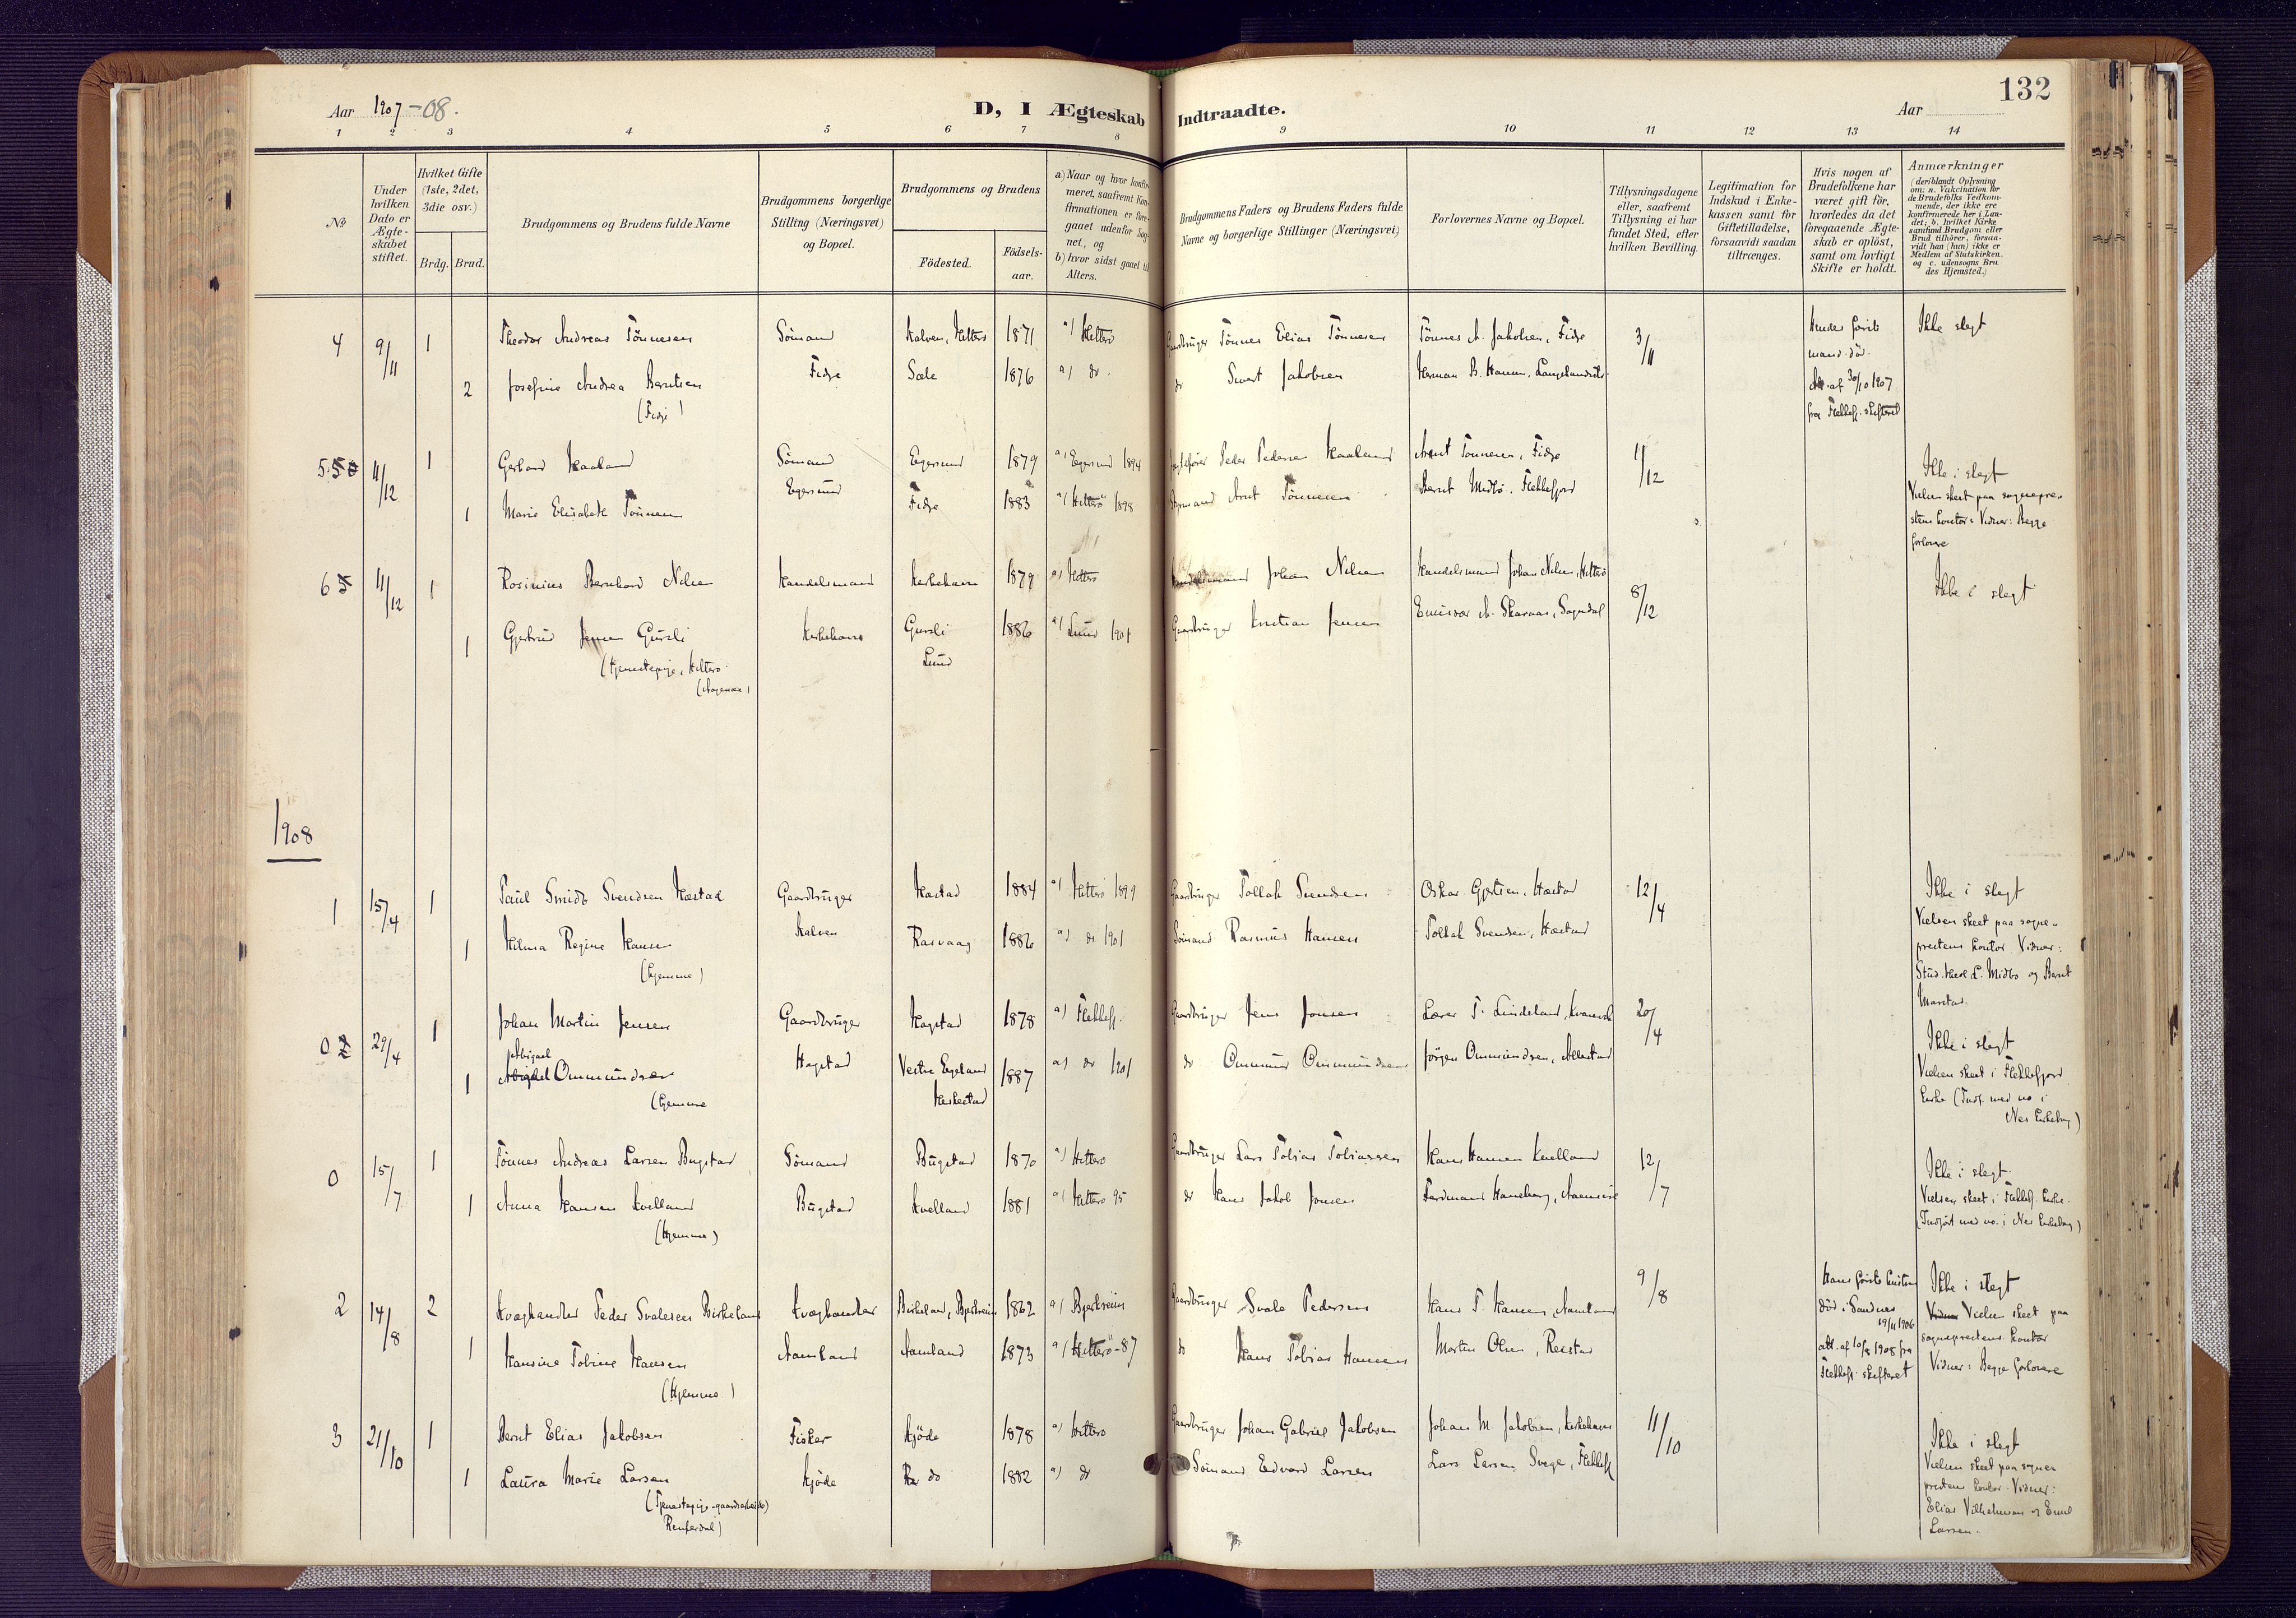 132
Aar 1907-08.
D, I Ægteskab Indtraadte.
Aar
1 2 3 4 5 6 7 8 9 10 11 12 13 14
No
Under hvilken Dato er Ægteskabet stiftet.
Hvilket Gifte (1ste, 2det, 3die osv.)
Brdg. Brud.
Brudgommens og Brudens fulde Navne
Brudgommens borgerlige Stilling (Næringsvei) og Bopæl.
Brudgommens og Brudens
Födested.
Födselsaar.
a) Naar og hvor konfirmeret, saafremt Konfirmationen er foregaaet udenfor Sognet, og
b) hvor sidst gaaet til Alters.
Brudgommens Faders og Brudens Faders fulde Navne og borgerlige Stillinger (Næringsvei)
Forlovernes Navne og Bopæl.
Tillysningsdagene eller, saafremt Tillysning ei har fundet Sted, efter hvilken Bevilling.
Legitimation for Indskud i Enkekassen samt for Giftetilladelse, forsaavidt saadan tiltrænges.
Hvis nogen af Brudefolkene har været gift för, hvorledes da det foregaaende Ægteskab er oplöst, samt om lovligt Skifte er holdt.
Anmærkninger
(deriblandt Oplysning om: a. Vakcination for de Brudefolks Vedkommende, der ikke ere konfirmerede her i Landet; b. hvilket Kirkesamfund Brudgom eller Brud tilhörer, forsaavidt han (hun) ikke er Medlem af Statskirken. og c. udensogns Brudes Hjemsted.)
4 9/11 1 Theodor Andreas Tönnesen Sömand Kalven, Hitterö 1871 a) Hitterö Gaardbruger Tönnes Elias Tönnesen Tönnes A. Jakobsen, Fidje 3/11 Hendes förste Ikke slegt
2 Josefine Andrea Berntsen Fidje Sæle 1876 a) do. do Sivert Jakobsen Herman B. Hansen, mand död.
(Fidje) af 30/10 1907
fra Flekkefj. skifteret
5 11/12 1 Gerhard Kaaland Sömand Egersund 1879 a) Egersund 1894 Peder Pedersen Kaaland Arnt Tönnesen, Fidje 11/12 Ikke i slegt
1 Marie Elisabeth Tönnesen Egersund Fidje 1883 a) Hitterö 1898 Styrmand Arnt Tönnesen Bernt Midbö, Flekkefjord Vielsen skeet paa sognepre-
stens kontor. Vidner: Begge
forlovere
6 11/12 1 Rosinius Bernhard Nilsen Handelsmand Kirkehavn 1879 a) Hitterö Handelsmand Johan Nilsen Handelsmand Johan Nilsen, Hitterö 8/12 Ikke i slegt
1 Gjertrud Jensen Gursli Kirkehavn Gursli 1886 a) Lund 1901 Gaardbruger Kristian Jensen Emissær A. Skaraas, Sogndal
(Tjenestepige, Hitterö Lund
1908
1 15/4 1 Paul Smidt Svendsen Hæstad Gaardbruger Hæstad 1884 a) Hitterö 1899 Gaardbruger Tollak Svendsen Oskar Gjertsen, Hæstad 12/4 Ikke i slegt
1 Hilma Regine Hansen Kalven Rasvaag 1886 a) do 1901 Sömand Rasmus Hansen Tollak Svendsen, Hæstad Vielsen skeet paa sogne-
(hjemme) prestens kontor. Vidner:
Stud. theol. L. Midbö og Bernt
0 29/4 1 Johan Martin Jensen Gaardbruger Hogstad 1878 a) Flekkefj. Gaardbruger Jens Jonsen Lærer T. Lindeland, 20/4 Ikke i slegt
Abigael
1 Ommundsen Hogstad Vestre Egeland 1887 a) do 1901 do Ommund Ommundsen Jörgen Ommundsen, Allestad Vielsen skeet i Flekkefjord
(hjemme Heskestad Kirke (Indf. med no i
Nes kirkebog)
0 15/7 1 Tönnes Andreas Larsen Bugstad Sömand Bugstad 1870 a) Hitterö Gaardbruger Lars Tobias Tobiassen Hans Hansen Kvelland 12/7 Ikke i slegt.
1 Anna Hansen Kvelland Bugstad Kvelland 1881 a) Hitterö 95 do Hans Jakob Jonsen Ferdinand Haneberg, Aamsire Vielsen skeet i Flekkefj. kirke.
(Hjemme) (Indfört med no. i Nes kirkebog)
2 14/8 2 Kvæghandler Peder Svalesen Birkeland Kvæghandler Birkeland, Bjerkreim 1862 a) Bjerkreim Gaardbruger Svale Pedersen Hans T. Hansen, Aamland 9/8 Hans förste hustru Ikke i slegt
1 Hansine Tobine Hansen Aamland Aamland 1873 a) Hitterö-87 do Hans Tobias Hansen Morten Olsen, Reestad död i Sandnes Vielsen skeet paa
(Hjemme) 19/11 1906 sogneprestens kontor
att. af 10/8 1908 fra Vidner: Begge forlovere
Flekkefj. skifteret
3 21/10 1 Bernt Elias Jakobsen Fisker Kjöde 1878 a) Hitterö Gaardbruger Johan Gabriel Jakobsen Johan M. Jakobsen, Kirkehavn 11/10 Ikke i slegt
1 Laura Marie Larsen Kjöde do 1882 a) do Sömand Edvard Larsen Lars Larsen Svege, Flekkefj Vielsen skeet paa sogne-
(Tjenestepige - gaardsarbeide) prestens kontor. Vidner:
Elias Vilhelmsen og Emil
Larsen.